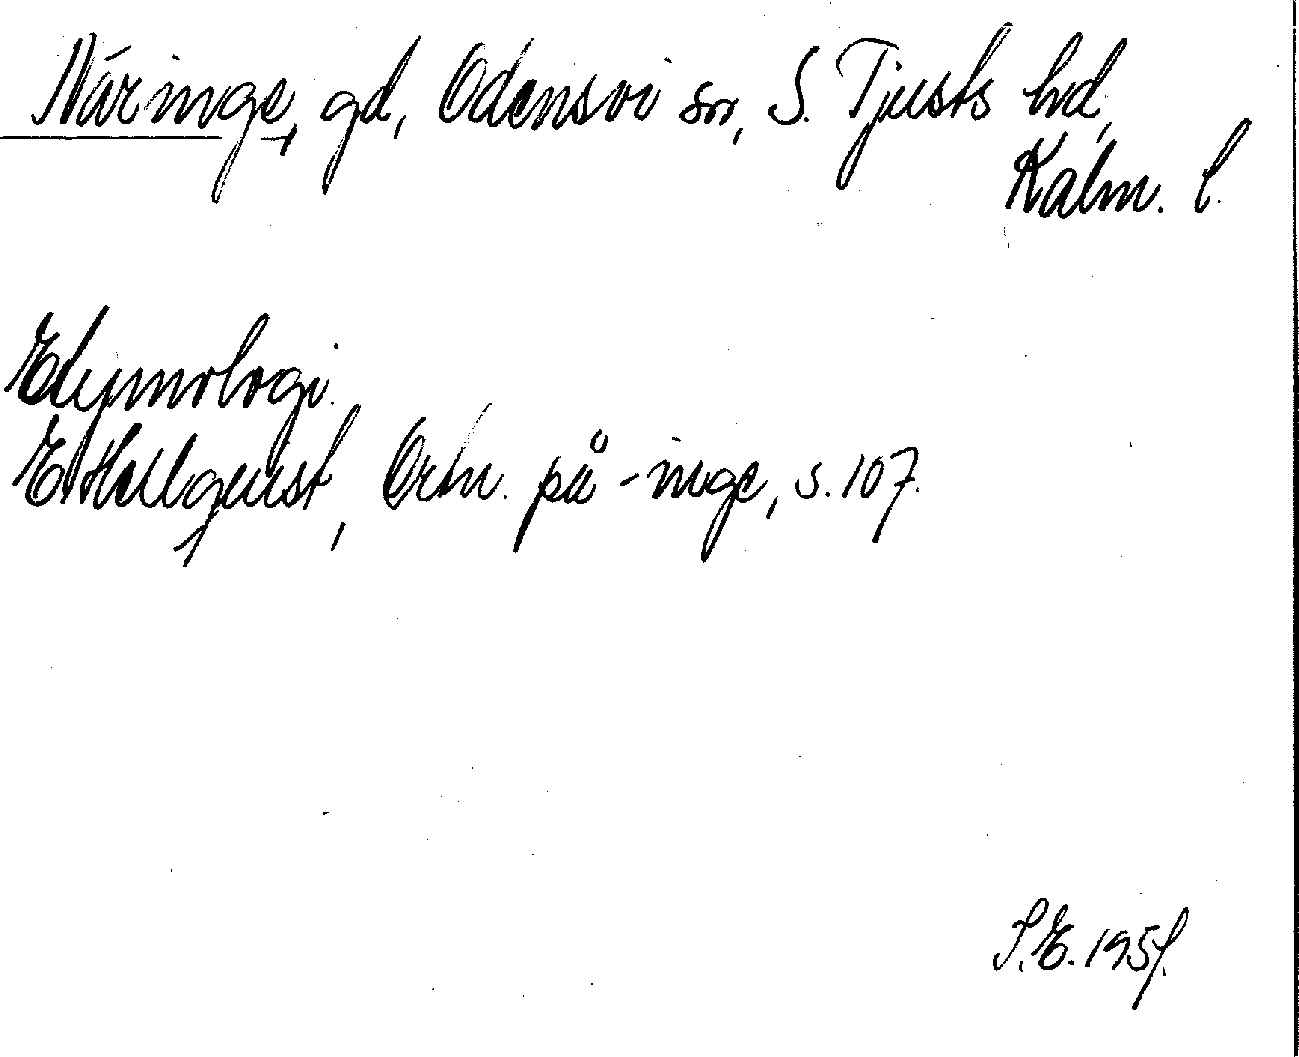 Näringe, gd, Odensvi sn, S. Tjusts hd,
Kalm. l.
Etymologi.
E Hellquist, Ortn. på -inge, s. 107.
S.E. 195